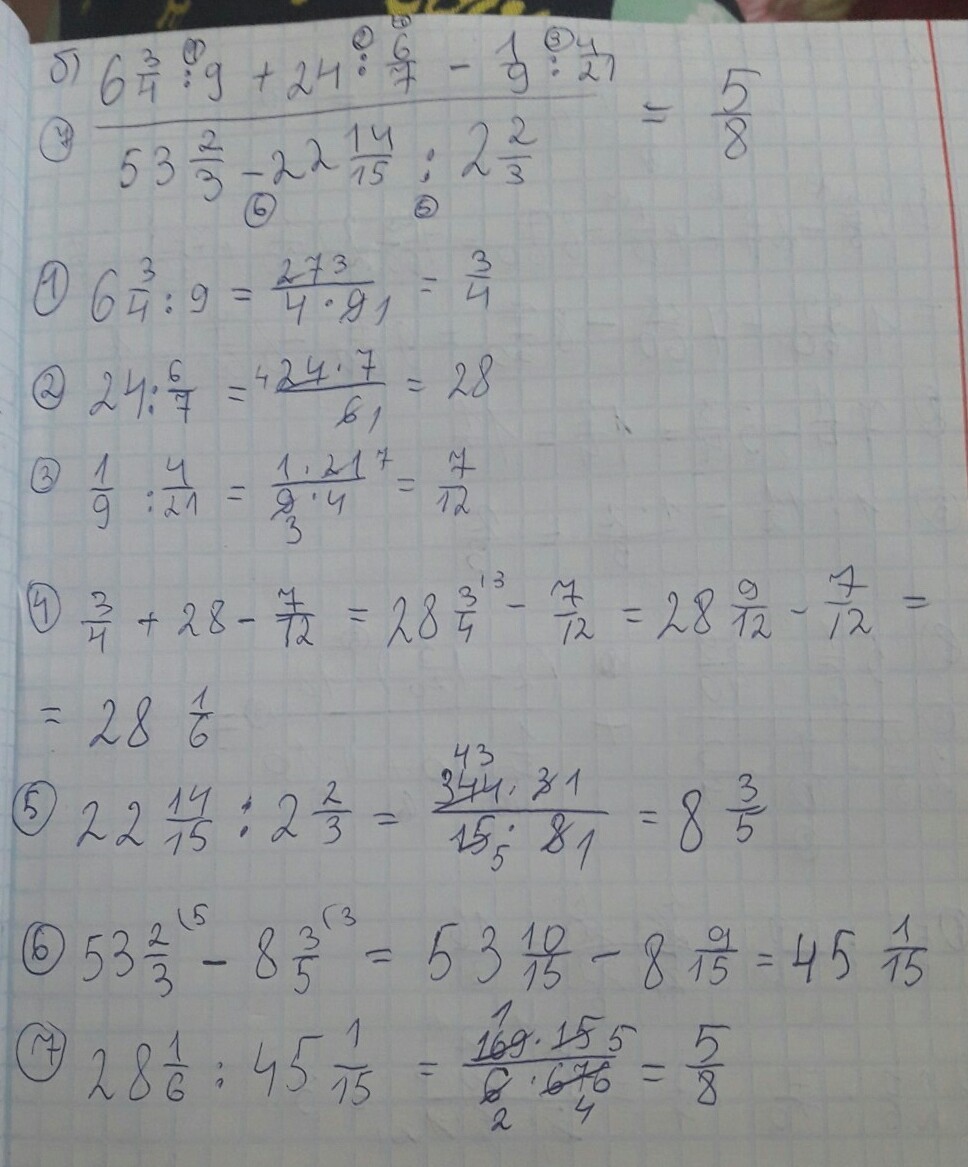 б) 6 3/4 : 9 + 24 : 6/7 - 1/9 : 4/21
53 2/3 - 22 14/15 : 2 2/3 = 5/8
① 6 3/4 : 9 = 27 3 / 4 · 9 1 = 3/4
② 24 : 6/7 = 4 24 · 7 / 6 1 = 28
③ 1/9 : 4/21 = 1 · 21 7 / 9 · 4 3 = 7/12
④ 3/4 + 28 - 7/12 = 28 3/4 (3 - 7/12 = 28 9/12 - 7/12 =
= 28 1/6
⑤ 22 14/15 : 2 2/3 = 43 344 · 3 1 / 15 5 · 8 1 = 8 3/5
⑥ 53 2/3 (5 - 8 3/5 (3 = 53 10/15 - 8 9/15 = 45 1/15
⑦ 28 1/6 : 45 1/15 = 1 169 · 15 5 / 6 2 · 676 4 = 5/8